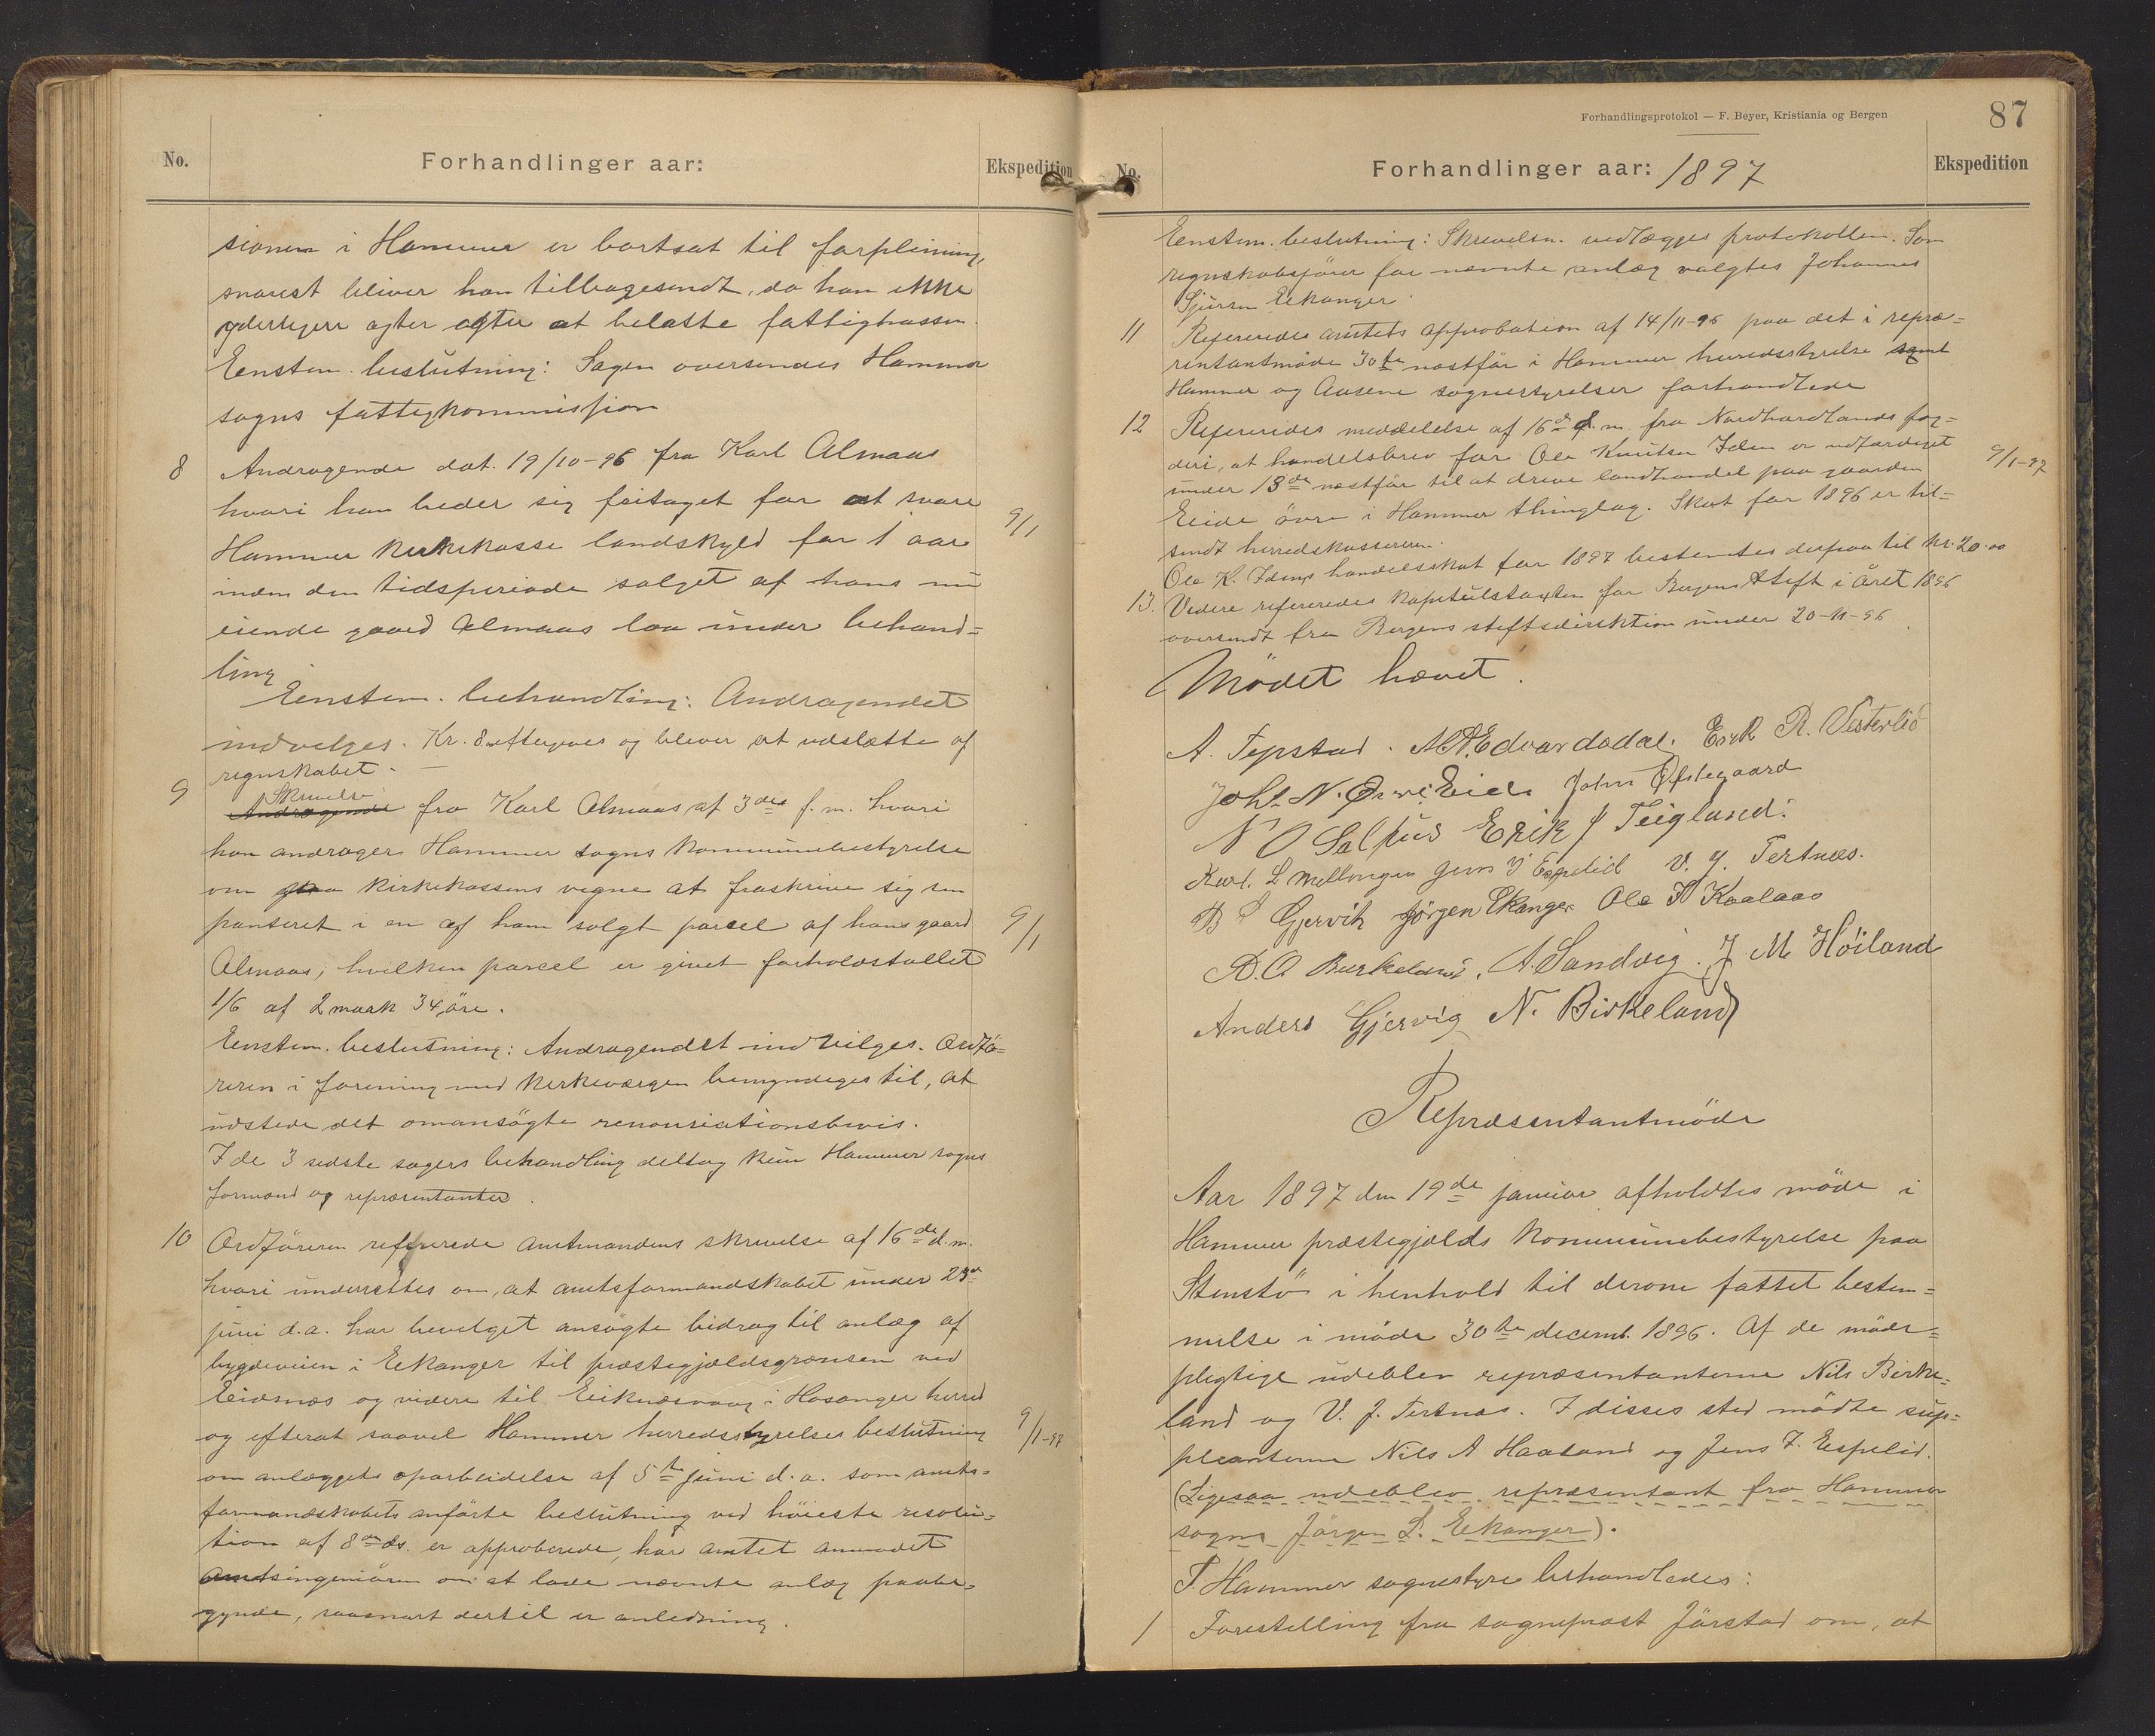 No.
Forhandlinger aar:
Ekspedition
sionen i Hammer er bortsat til forpleining,
snarest bliver han tilbagesendt, da han ikke
yderligere agter agter at belaste fattigkassen.
Eenstem. beslutning: Sagen oversendes Hammer
sogns fattigkommission
8 Andragende dat. 19/10-96 fra Karl Almaas
hvori han beder sig fritaget for at svare
9/1
Hammer kirkekasse landskyld for 1 aar
inden den tidsperiode salget af hans nu
eiende gaard Almaas laa under behand=
ling
Eenstem. behandling: Andragendet
indvilges. Kr. 8 eftergives og bliver at udslætte af
regnskabet.
9 Andragende Skrivelse fra Karl Almaas af 3die f. m. hvori
han andrager Hammer sogns kommunebestyrelse
om paa kirkekassens vegne at fraskrive sig sin
panteret i en af ham solgt parcel af hans gaard
9/1
Almaas, hvilken parcel er givet forholdstallet
1/6 af 2 mark 34 øre.
Eenstem. beslutning: Andragendet indvilges. Ordfö=
reren i forening med kirkeværgen bemyndiges til, at
udstede det omansögte renonciationsbevis.
I de 3 sidste sagers behandling deltog kun Hammer sogns
formænd og repræsentanter.
10 Ordföreren refererede amtmandens skrivelse af 16de d. m.
hvori underrettes om, at amtsformandskabet under 23de
juni d.a. har bevilget ansögte bidrag til anlæg af
bygdeveien i Eekanger til præstegjældsgrænsen ved
Eidsnæs og videre til Eeiknæsvaag i Hosanger herred
og efterat saavel Hammer herredsstyrelses beslutning
9/1-97
om anlæggets oparbeidelse af 5te juni d.a. som amts=
formandskabets anförte beslutning ved höieste resolu=
tion af 8de ds. er approberede, har amtet anmodet
amtsingeniören om at lade nævnte anlæg paabe=
gynde, saasnart dertil er anledning.
Forhandlingsprotokol — F. Beyer, Kristiania og Bergen
87
No.
Forhandlinger aar: 1897
Ekspedition
Eenstem. beslutning: Skrivelsen vedlægges protokollen. Som
regnskabsförer for nævnte anlæg valgtes Johannes
Sjursen Eekanger
11 Refereredes amtets approbation af 14/11-96 paa det i repræ=
sentantmöde 30te næstför i Hammer herredsstyrelse samt
Hammer og Aasene sognestyrelser forhandlede
12 Refereredes meddelelse af 16de d. m. fra Nordhordlands fog=
deri, at handelsbrev for Ole Knutsen Idem er udfærdiget
9/1-97
under 13de næstför til at drive landhandel paa gaarden
Eeide övre i Hammer thinglag. Skat for 1896 er til=
sendt herredskassereren.
Ole K. Idems handelsskat for 1897 bestemtes derpaa til kr. 20.00
13. Videre refereredes kapitelstaxten for Bergens Stift i året 1896
oversendt fra Bergens stiftsdirektion under 20-11-96.
Mödet hævet.
A. Tepstad. A. A. Edvardsdal. Erik R. Vesterlid
Johs. N. Övre Eide John Öfstegaard
N O Salhus Erik J Teigland.
Karl. L Mellingen Jens J Espelid V. J. Tertnæs.
B S Gjervik Jörgen Ekanger Ole K Kaalaas
D. O Burkeland. A. Sandvig. J M Höiland
Anders Gjervig N. Birkeland
Repræsentantmöde
Aar 1897 den 19de januar afholdtes möde i
Hammer præstegjælds kommunebestyrelse paa
Stenstö i henhold til derom fattet bestem=
melse i möde 30te decemb. 1896. Af de möde=
pligtige udeblev repræsentanterne Nils Birke=
land og V. J. Tertnæs. I disses sted mödte sup=
pleanterne Nils A Haaland og Jens J. Eespelid.
(Ligesaa udeblev repræsentant fra Hammer
sogns Jörgen S. Eekanger).
I. Hammer sognestyre behandledes:
1 Forestilling fra sogneprest Jårstad om, at